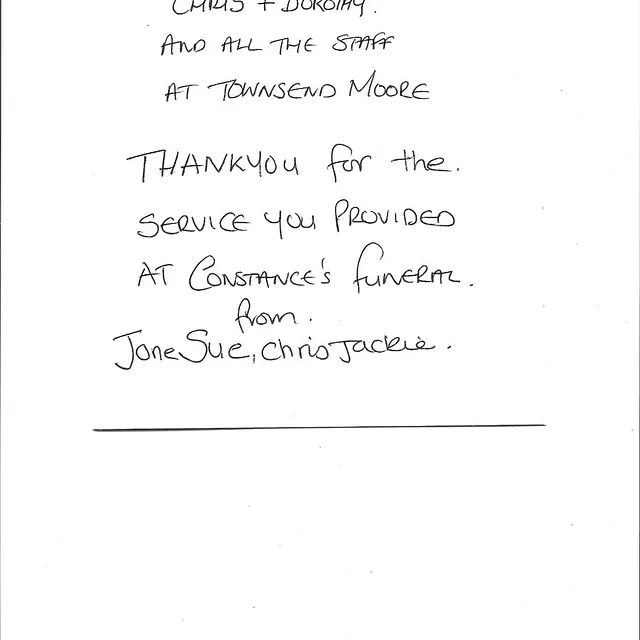 CHRIS + DOROTHY.
AND ALL THE STAFF
AT TOWNSEND MOORE
THANKYOU for the.
SERVICE YOU PROVIDED
AT CONSTANCE'S FUNERAL.
from.
Jane Sue, Chris Jackie.